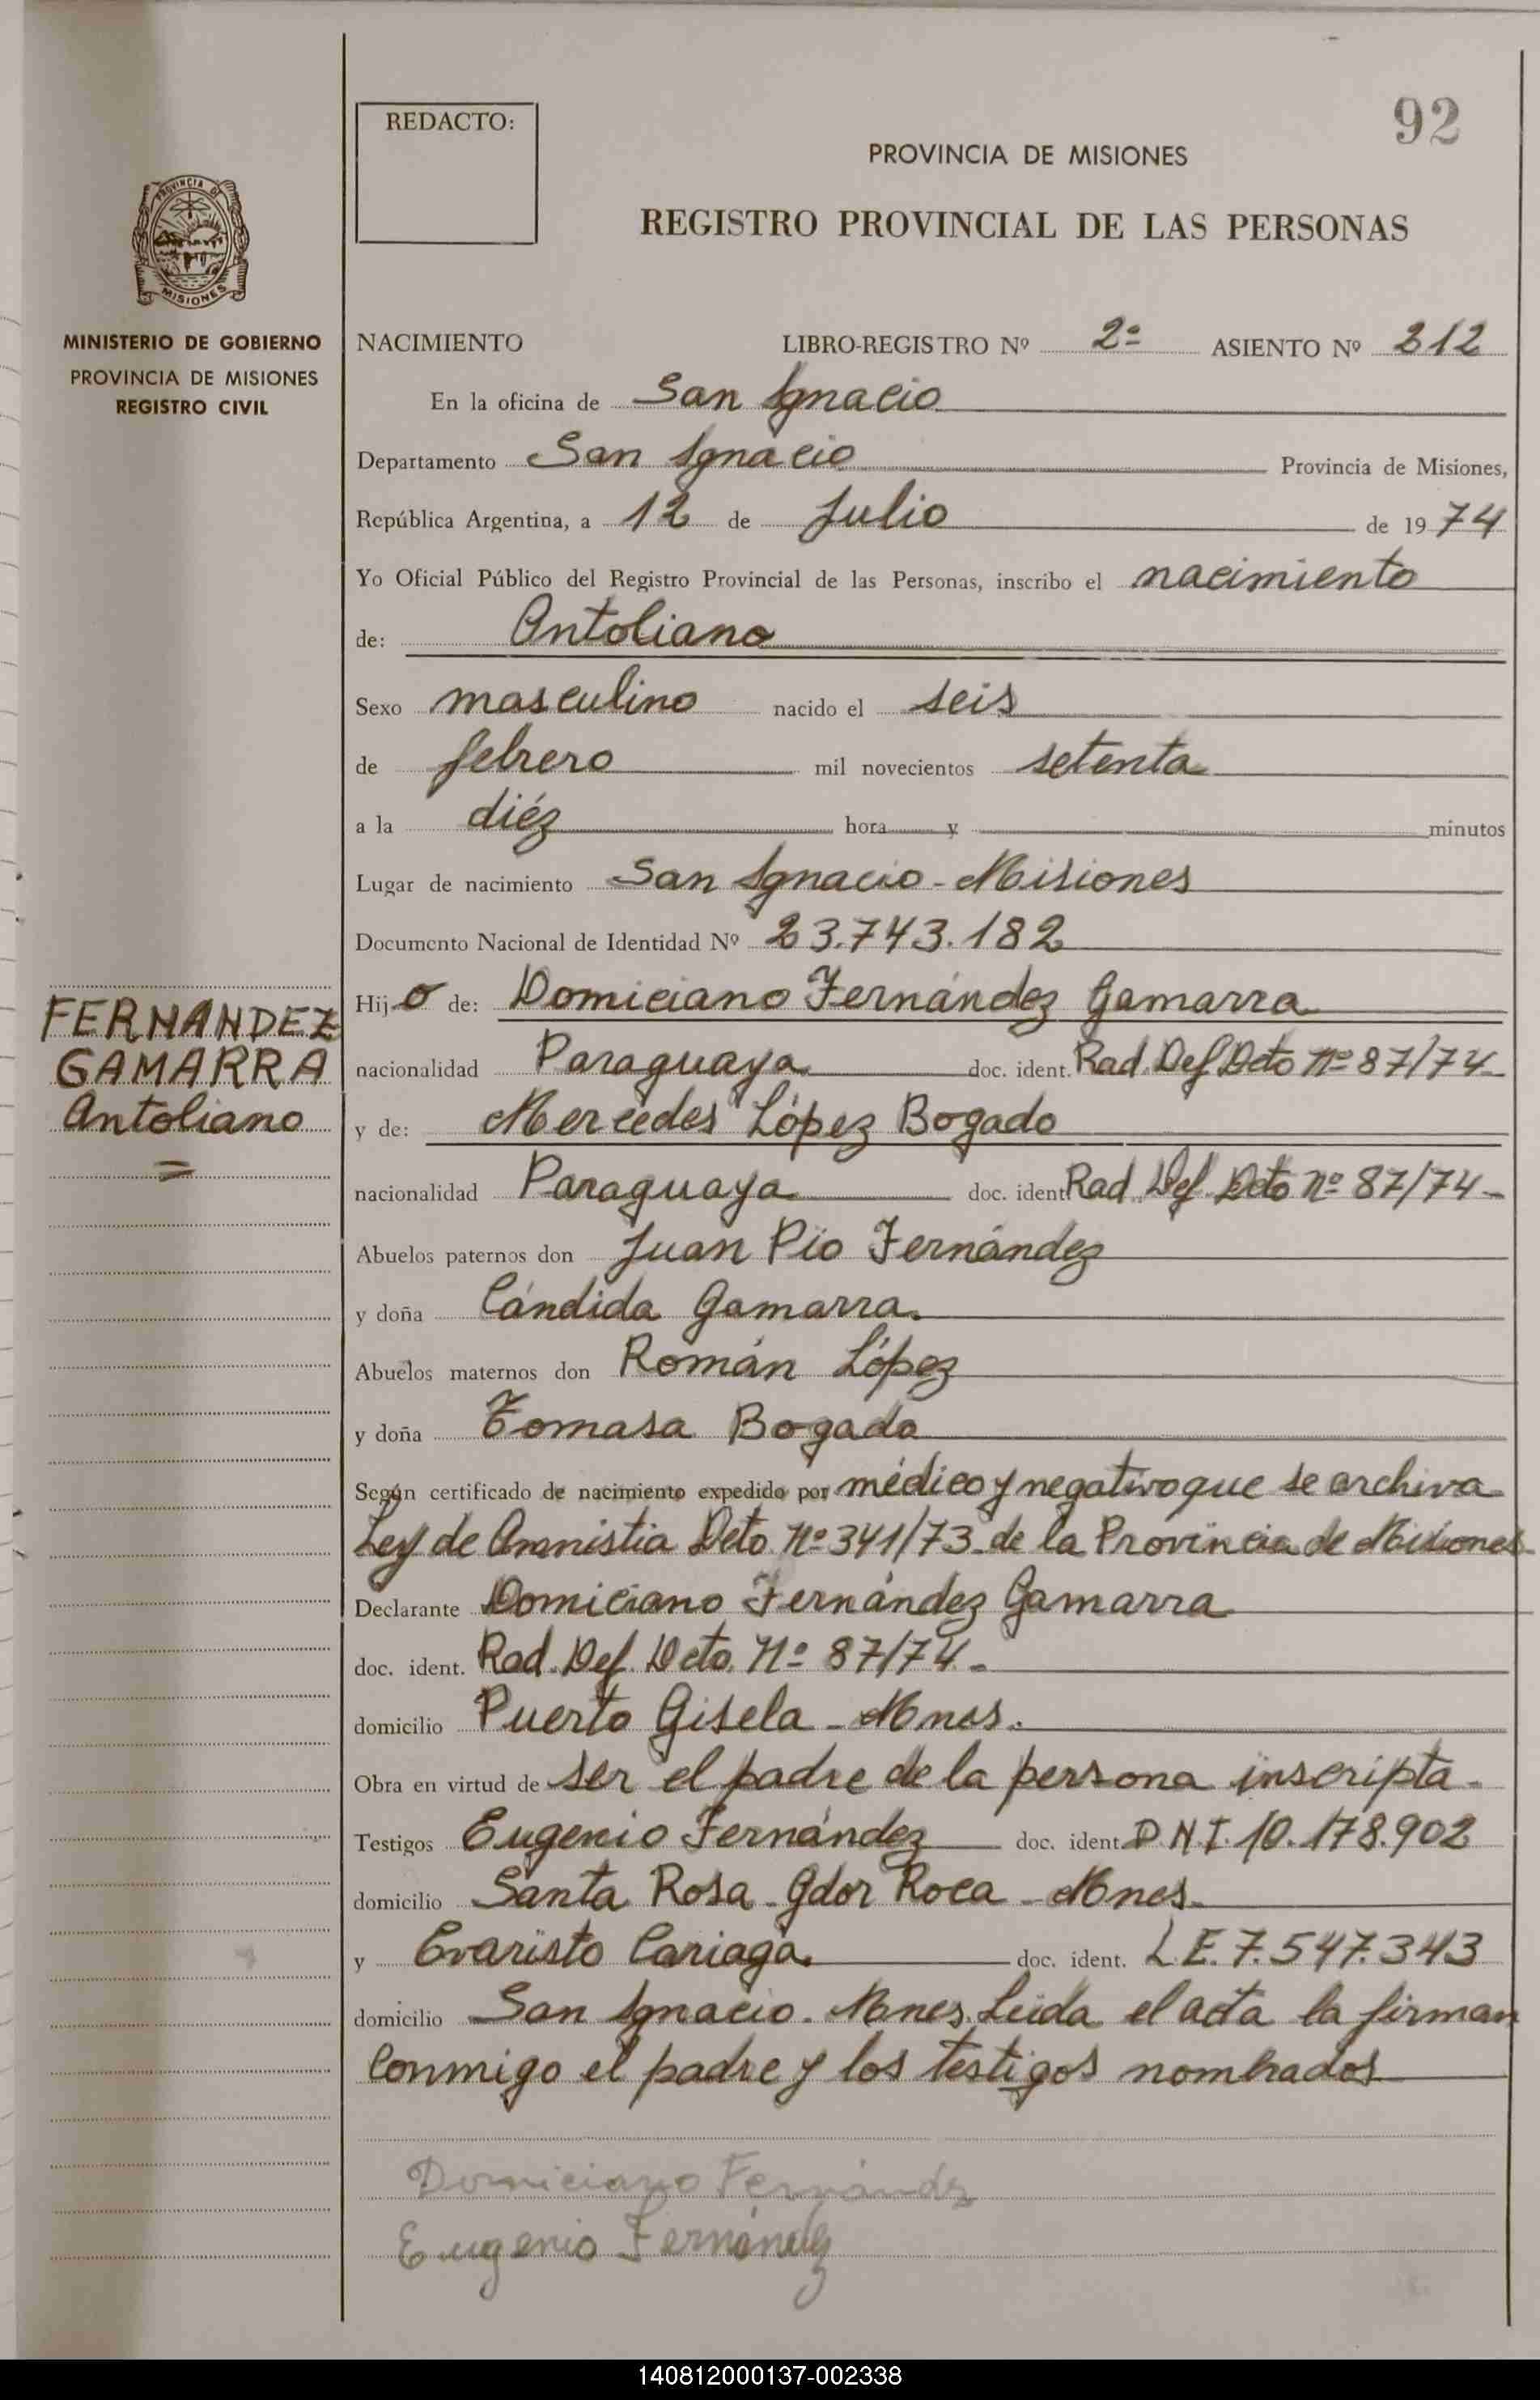 92
REDACTO:
PROVINCIA DE MISIONES
REGISTRO PROVINCIAL DE LAS PERSONAS
PROVINCIA DE
MISIONES
MINISTERIO DE GOBIERNO
PROVINCIA DE MISIONES
REGISTRO CIVIL
NACIMIENTO LIBRO-REGISTRO Nº 2º ASIENTO Nº 212
En la oficina de San Ignacio
Departamento San Ignacio Provincia de Misiones,
República Argentina, a 12 de Julio de 1974
Yo Oficial Público del Registro Provincial de las Personas, inscribo el nacimiento
de: Antoliano
Sexo masculino nacido el seis
de febrero mil novecientos setenta
a la diéz hora y minutos
Lugar de nacimiento San Ignacio - Misiones
Documento Nacional de Identidad Nº 23.743.182
FERNANDEZ
GAMARRA
Antoliano
=
Hijo de: Domiciano Fernández Gamarra
nacionalidad Paraguaya doc. ident. Rad. Def Dcto nº 87/74
y de: Mercedes López Bogado
nacionalidad Paraguaya doc. ident Rad. Def. Dcto nº 87/74-
Abuelos paternos don Juan Pío Fernández
y doña Cándida Gamarra
Abuelos maternos don Román López
y doña Tomasa Bogado
Según certificado de nacimiento expedido por médico y negativo que se archiva
Ley de Amnistia Dcto. Nº 341/73 de la Provincia de Misiones
Declarante Domiciano Fernández Gamarra
doc. ident. Rad. Def. Dcto. Nº 87/74.-
domicilio Puerto Gisela - Mnes.
Obra en virtud de ser el padre de la persona inscripta.
Testigos Eugenio Fernández doc. ident. D.N.I. 10.178.902
domicilio Santa Rosa - Gdor Roca - Mnes.
y Evaristo Cariaga doc. ident. L.E. 7.547.343
domicilio San Ignacio. Mnes. Leida el acta la firman
conmigo el padre y los testigos nombrados
Domiciano Fernández
Eugenio Fernández
140812000137-002338